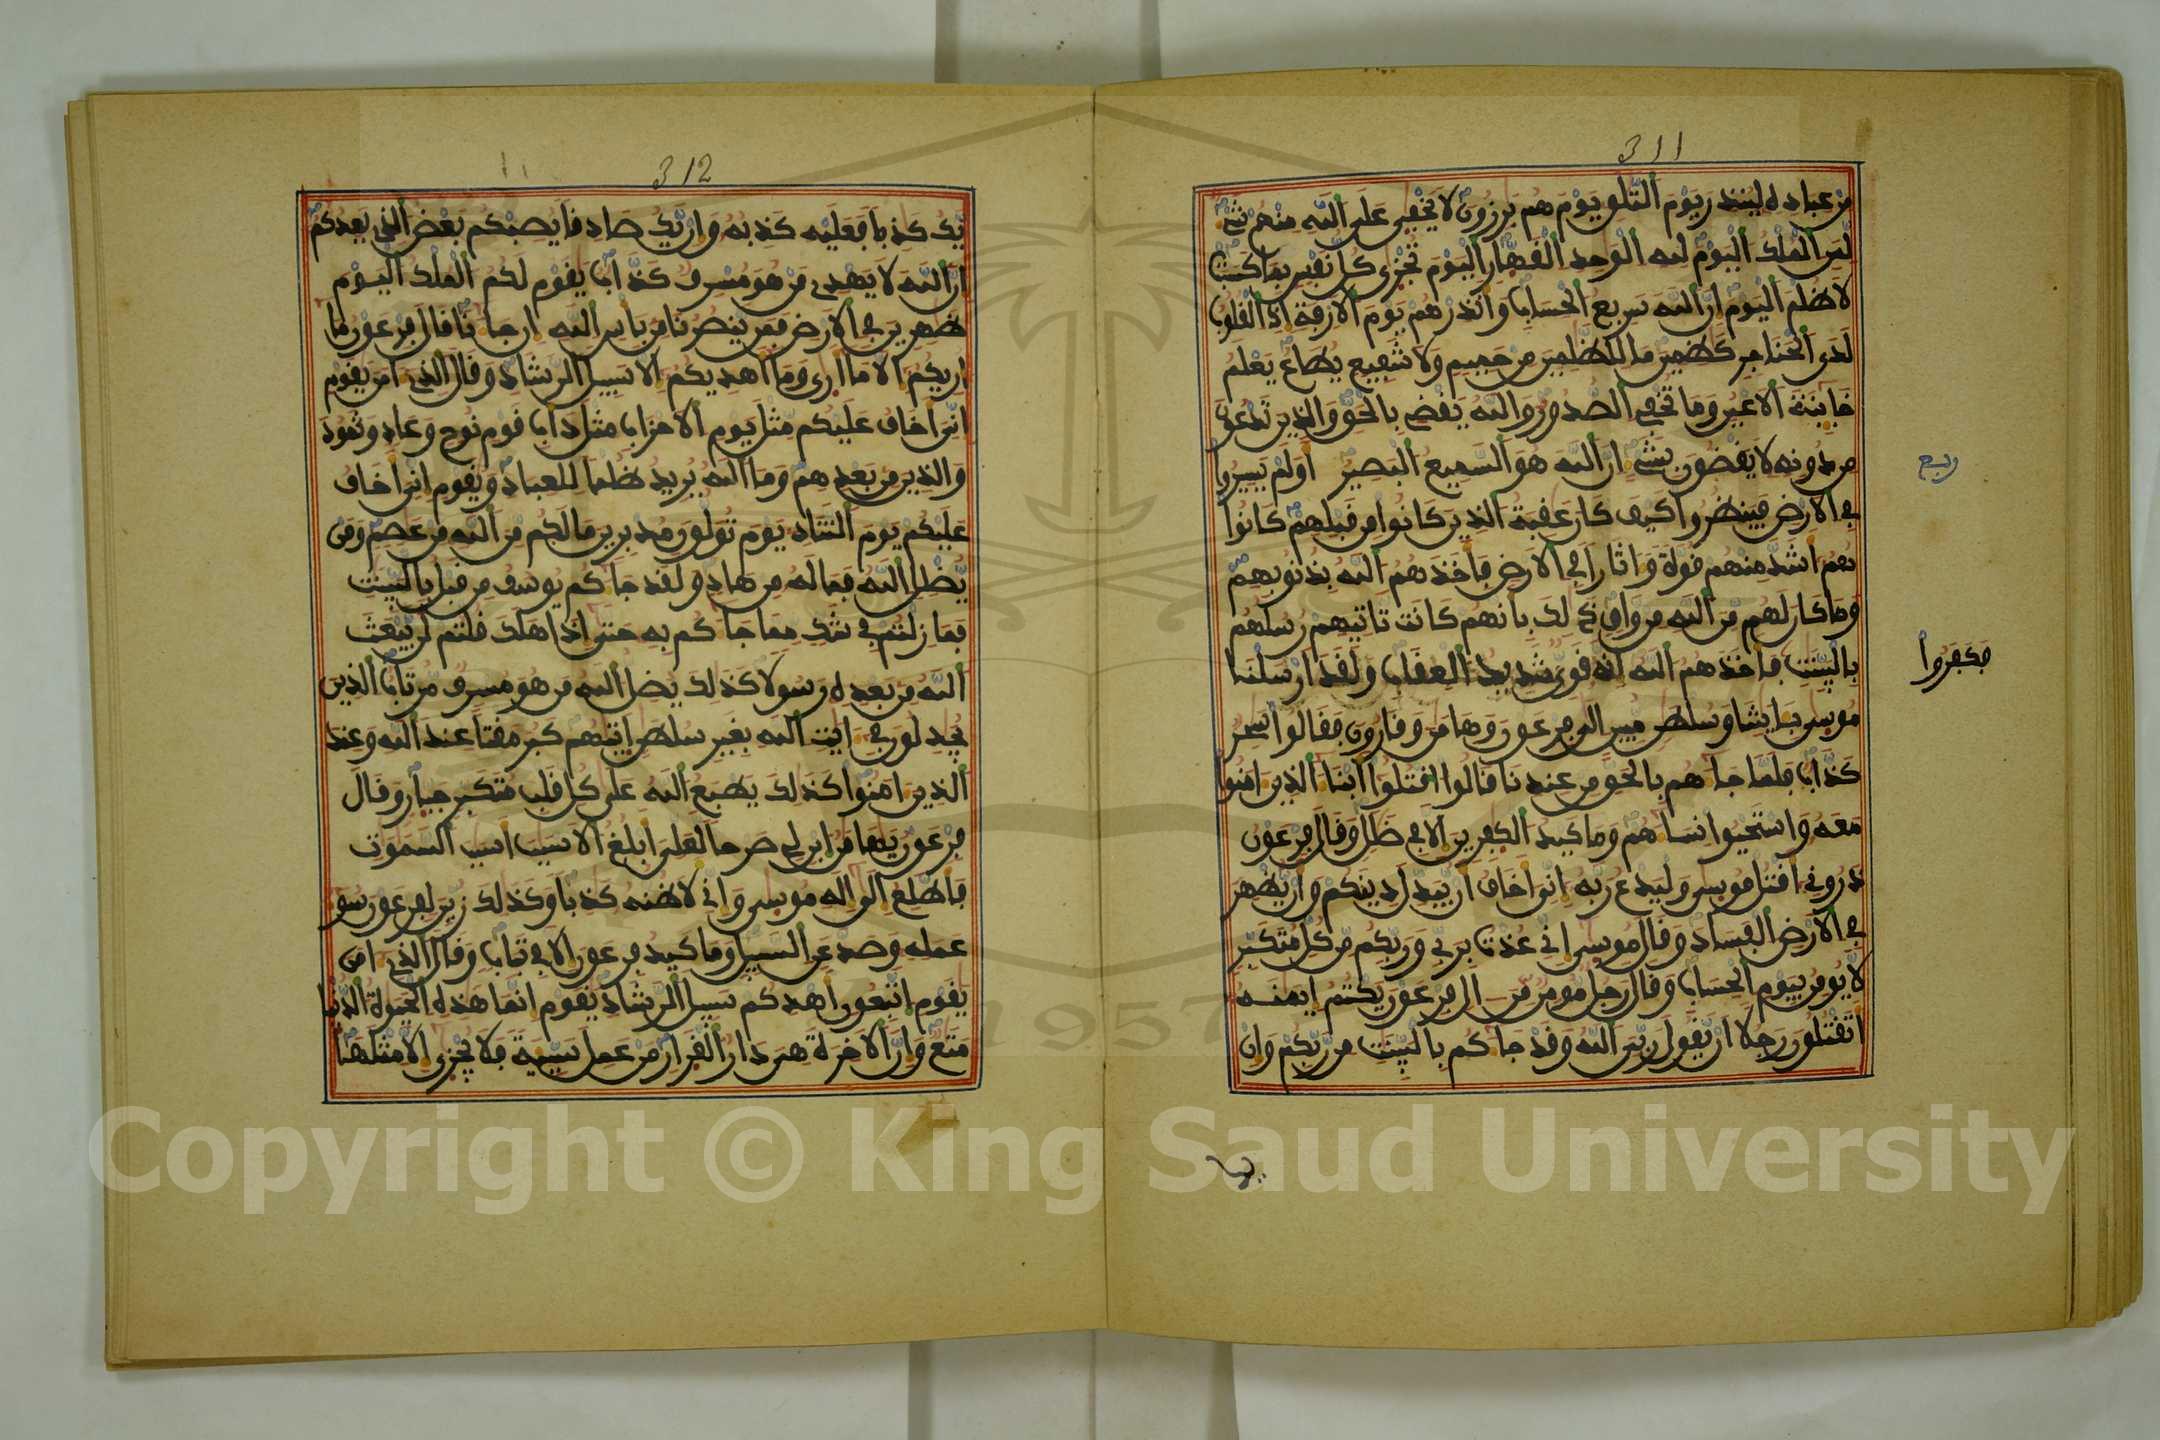 311
من عباده لينذر يوم التلو يوم هم برزون لا يخفى على الله منهم شيء
لمن الملك اليوم لله الوحد القهار اليوم تجزى كل نفس بما كسبت
لا ظلم اليوم ان الله سريع الحساب وانذرهم يوم الازفة اذ القلوب
لدى الحناجر كظمين ما للظلمين من حميم ولا شفيع يطاع يعلم
خاينة الاعين وما تخفي الصدور والله يقضي بالحق والذين تدعون
من دونه لا يقضون بشيء ان الله هو السميع البصير اولم يسيروا
في الارض فينظروا كيف كان عقبة الذين كانوا من قبلهم كانوا
هم اشد منهم قوة واثارا في الارض فاخذهم الله بذنوبهم
وما كان لهم من الله من واق ذلك بانهم كانت تاتيهم رسلهم
بالبينت فاخذهم الله انه قوي شديد العقاب ولقد ارسلنا
موسى بايتنا وسلطن مبين الى فرعون وهامن وقارون فقالوا سحر
كذاب فلما جاهم بالحق من عندنا قالوا اقتلوا ابنا الذين امنوا
معه واستحيوا نساهم وما كيد الكفرين الا في ضلل وقال فرعون
ذروني اقتل موسى وليدع ربه اني اخاف ان يبدل دينكم وان يظهر
في الارض الفساد وقال موسى اني عذت بربي وربكم من كل متكبر
لا يومن بيوم الحساب وقال رجل مومن من ال فرعون يكتم ايمنه
اتقتلون رجلا ان يقول ربي الله وقد جاكم بالبينت من ربكم وان
ربع
فكفروا
312
يك كذبا فعليه كذبه وان يك صادقا يصبكم بعض الذي يعدكم
ان الله لا يهدي من هو مسرف كذاب يقوم لكم الملك اليوم
ظهرين في الارض فمن ينصرنا من باس الله ان جانا قال فرعون ما
اريكم الا ما ارى وما اهديكم الا سبيل الرشاد وقال الذي امن يقوم
اني اخاف عليكم مثل يوم الاحزاب مثل داب قوم نوح وعاد وثمود
والذين من بعدهم وما الله يريد ظلما للعباد ويقوم اني اخاف
عليكم يوم التناد يوم تولون مدبرين ما لكم من الله من عصم ومن
يضلل الله فما له من هاد ولقد جاكم يوسف من قبل بالبينت
فما زلتم في شك مما جاكم به حتى اذا هلك قلتم لن يبعث
الله من بعده رسولا كذلك يضل الله من هو مسرف مرتاب الذين
يجدلون في ايت الله بغير سلطن اتيهم كبر مقتا عند الله وعند
الذين امنوا كذلك يطبع الله على كل قلب متكبر جبار وقال
فرعون يهامن ابن لي صرحا لعلي ابلغ الاسبب اسبب السموت
فاطلع الى اله موسى واني لاظنه كذبا وكذلك زين لفرعون سو
عمله وصد عن السبيل وما كيد فرعون الا في تباب وقال الذي امن
يقوم اتبعون اهدكم سبيل الرشاد يقوم انما هذه الحيوة الدنيا
متع وان الاخرة هي دار القرار من عمل سيية فلا يجزى الا مثلها
1957
Copyright © King Saud University